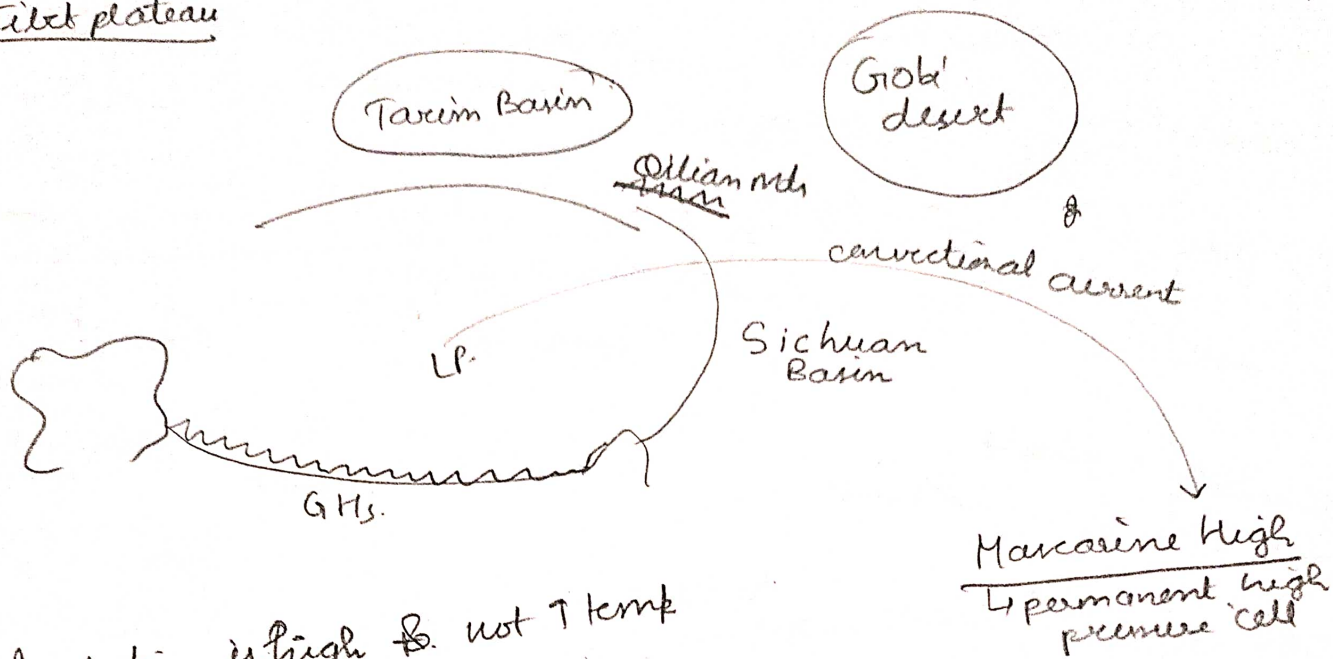 Tibet plateau
Tarim Basin
Gobi
desert
Qilian mts
&
convectional current
LP.
Sichuan
Basin
GHs.
Mascarine High
↳ permanent high
pressure cell
is high &. not ↑ temp